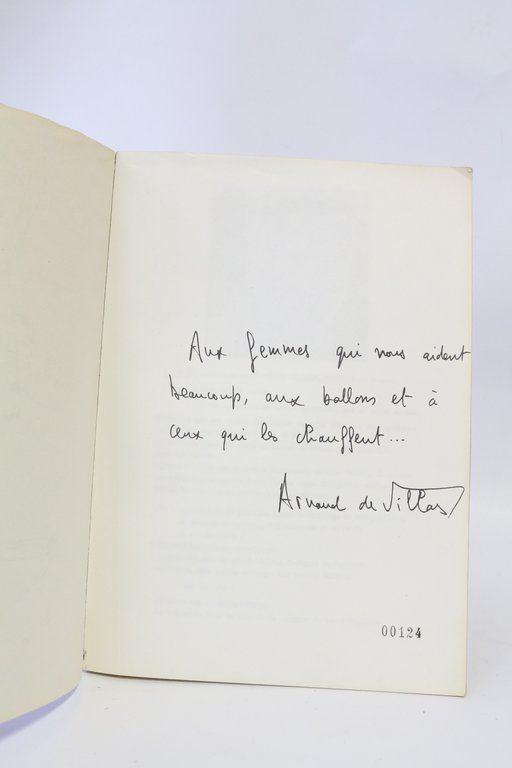 Aux femmes qui nous aident
beaucoup, aux ballons et à
ceux qui les chauffent...
Arnaud de Villas
00124